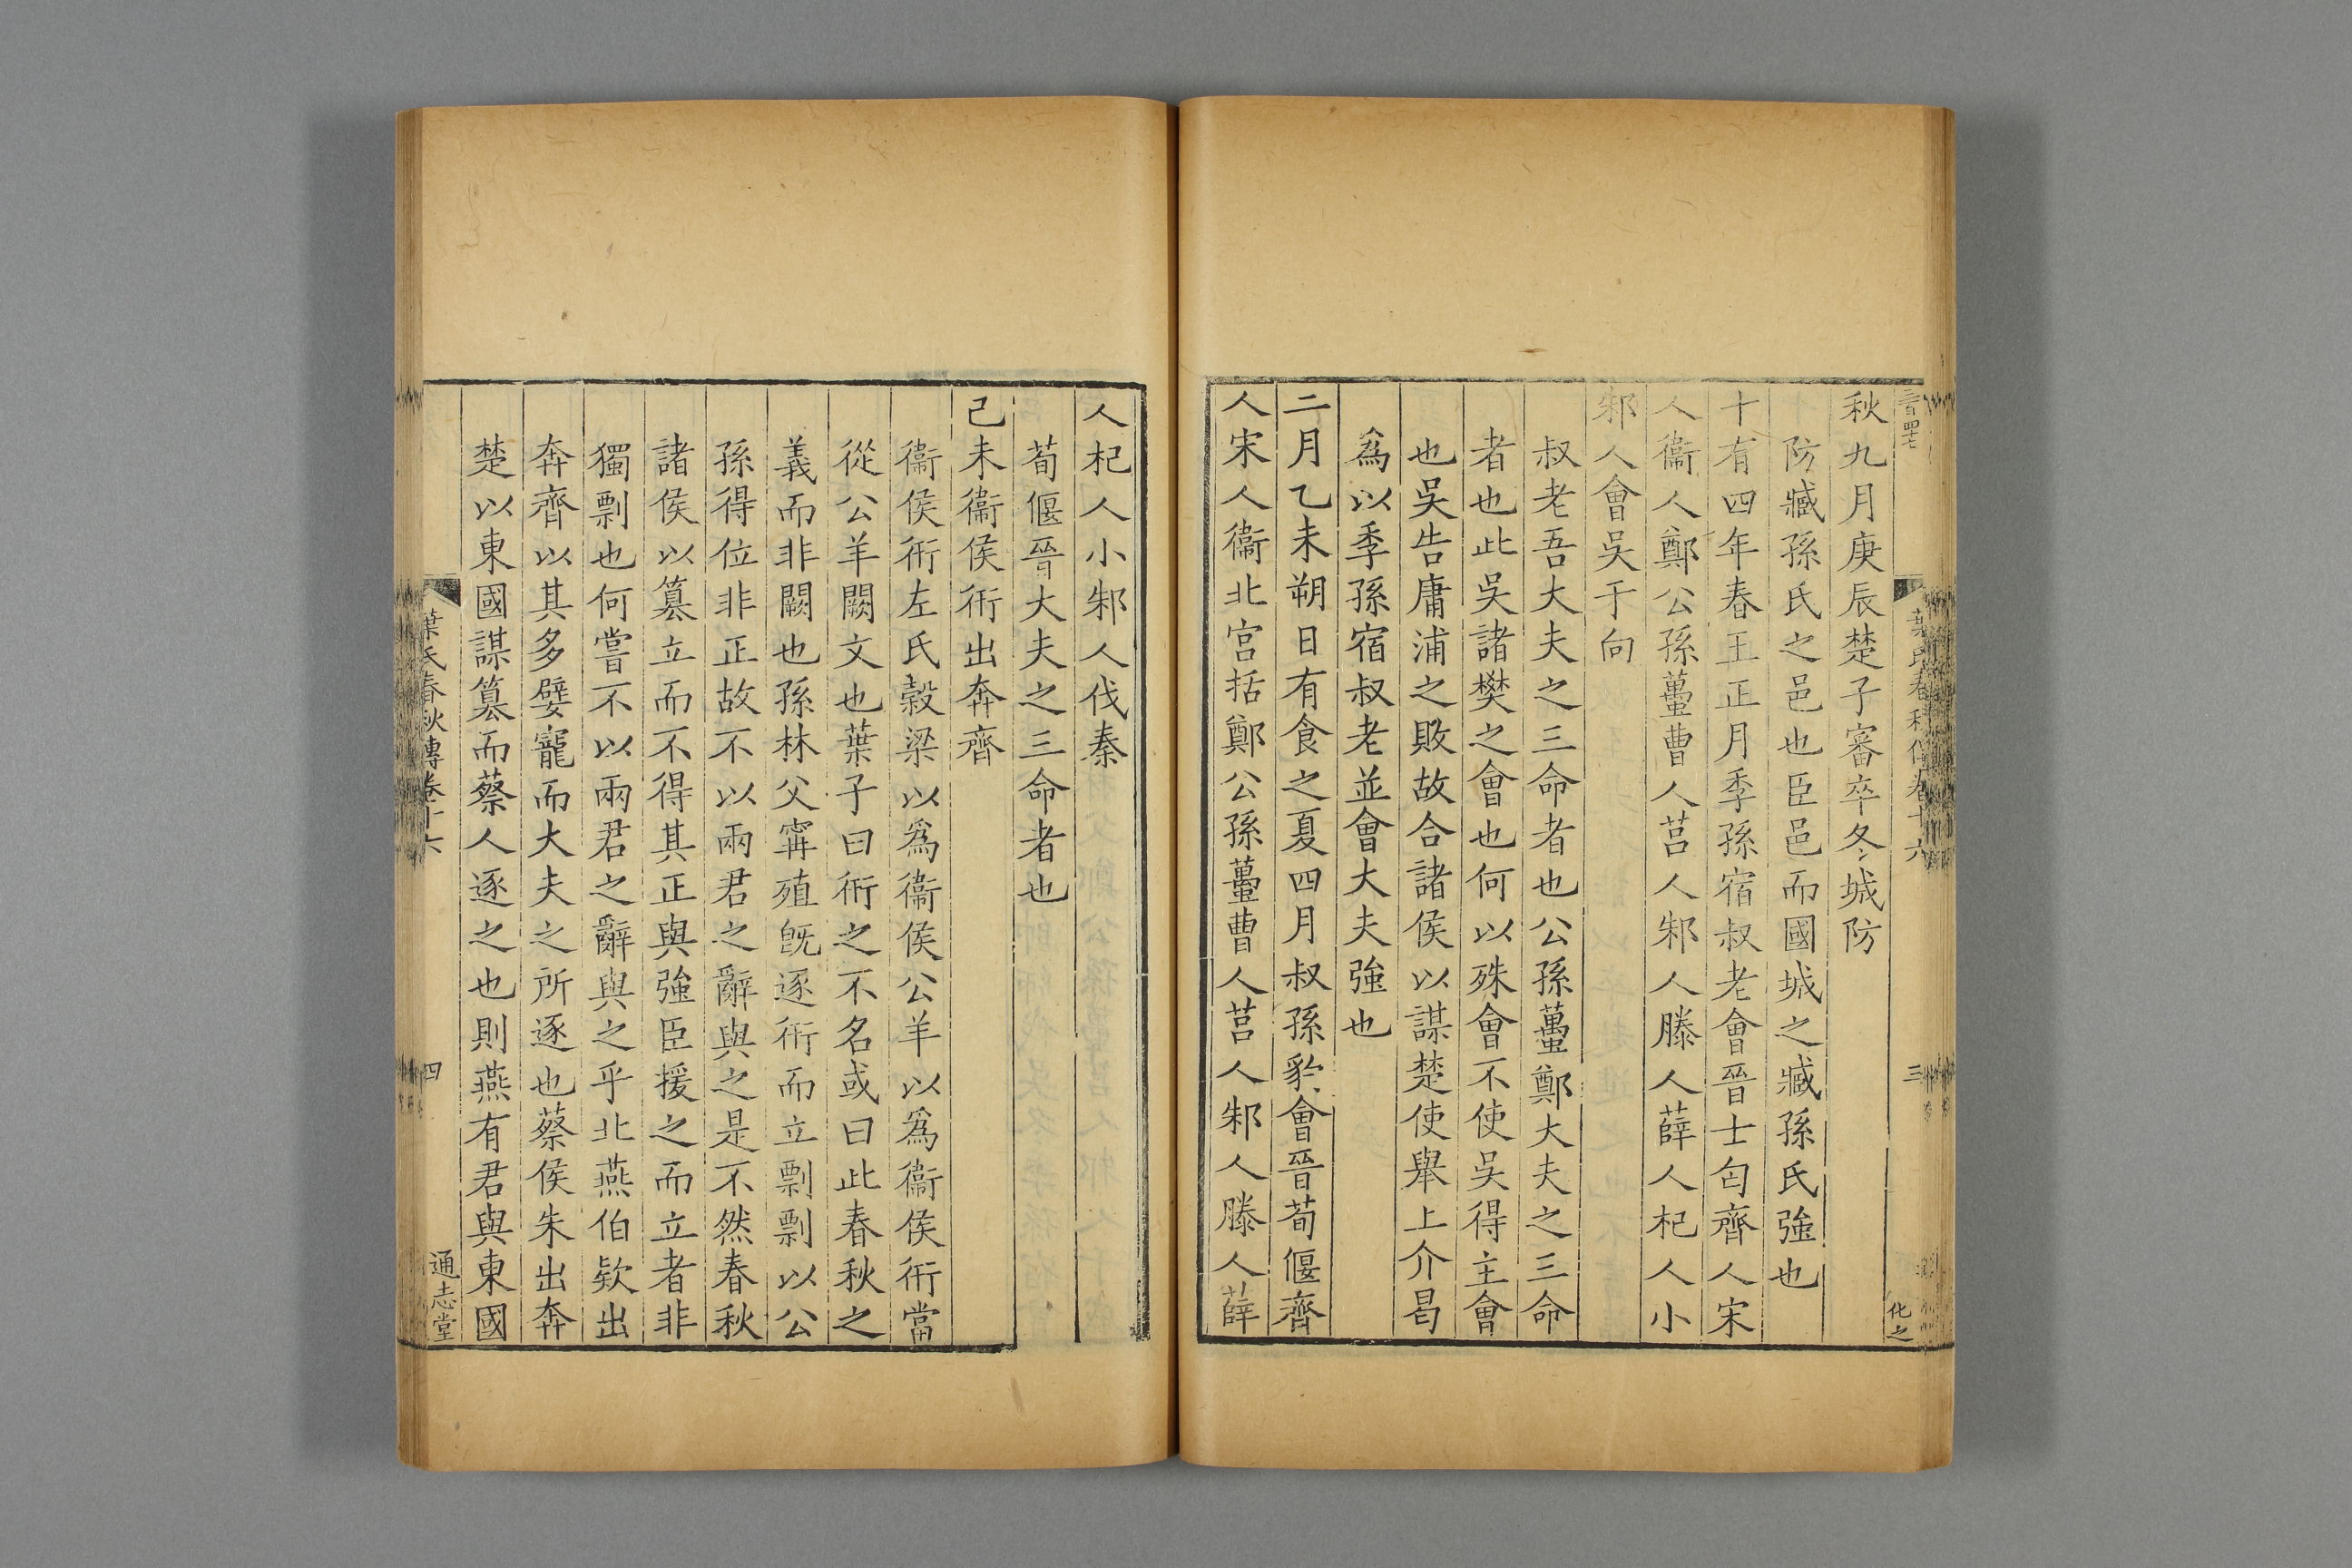 秋九月庚辰楚子審卒冬城防
防臧孫氏之邑也臣邑而國城之臧孫氏強也
十有四年春王正月季孫宿叔老會晉士匄齊人宋
人衞人鄭公孫蠆曹人莒人邾人滕人薛人杞人小
邾人會吳于向
叔老吾大夫之三命者也公孫蠆鄭大夫之三命
者也此吳諸樊之會也何以殊會不使吳得主會
也吳告庸浦之敗故合諸侯以謀楚使舉上介曷
為以季孫宿叔老並會大夫強也
二月乙未朔日有食之夏四月叔孫豹會晉荀偃齊
人宋人衞北宮括鄭公孫蠆曹人莒人邾人滕人薛
三
化之
人杞人小邾人伐秦
荀偃晉大夫之三命者也
己未衞侯衎出奔齊
衞侯衎左氏穀梁以為衞侯公羊以為衞侯衎當
從公羊闕文也葉子曰衎之不名或曰此春秋之
義而非闕也孫林父甯殖旣逐衎而立剽剽以公
孫得位非正故不以兩君之辭與之是不然春秋
諸侯以篡立而不得其正與強臣援之而立者非
獨剽也何嘗不以兩君之辭與之乎北燕伯欵出
奔齊以其多嬖寵而大夫之所逐也蔡侯朱出奔
楚以東國謀篡而蔡人逐之也則燕有君與東國
葉氏春秋傳卷十六
四
通志堂